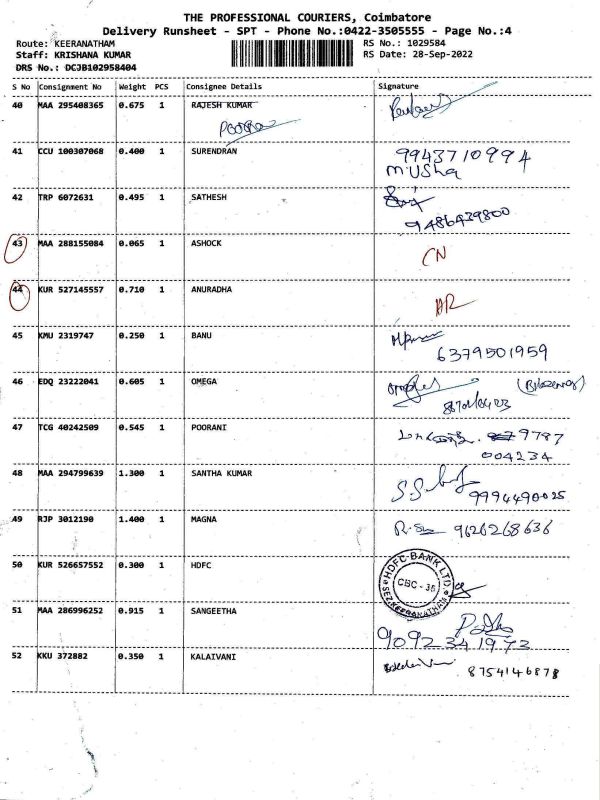 THE PROFESSIONAL COURIERS, Coimbatore
Delivery Runsheet - SPT - Phone No.:0422-3505555 - Page No.:4
Route: KEERANATHAM
RS No.: 1029584
Staff: KRISHANA KUMAR
RS Date: 28-Sep-2022
DRS No.: DCJB102958404
S No Consignment No Weight PCS Consignee Details Signature
40 MAA 295408365 0.675 1 RAJESH KUMAR
41 CCU 100307068 0.400 1 SURENDRAN 9943710994
M.USha
42 TRP 6072631 0.495 1 SATHESH
9486439800
43 MAA 288155084 0.065 1 ASHOCK CN
44 KUR 527145557 0.710 1 ANURADHA AR
45 KMU 2319747 0.250 1 BANU
6379501959
46 EDQ 23222041 0.605 1 OMEGA
47 TCG 40242509 0.545 1 POORANI 9787
004234
48 MAA 294799639 1.300 1 SANTHA KUMAR 9994490025
49 RJP 3012190 1.400 1 MAGNA 9626268636
50 KUR 526657552 0.300 1 HDFC
HDFC BANK LTD
CBC - 36
SEZ KEERANATHAM
51 MAA 286996252 0.915 1 SANGEETHA
9092341973
52 KKU 372882 0.350 1 KALAIVANI 8754146878